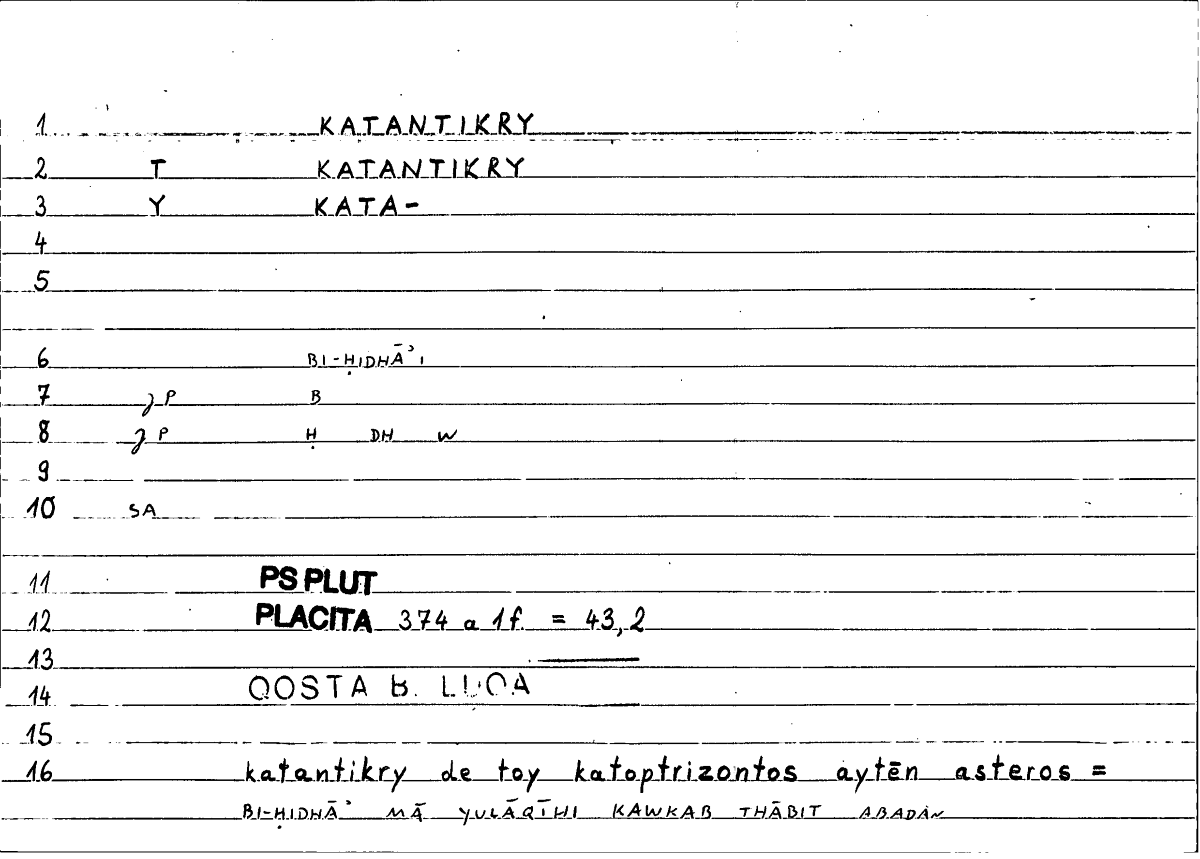 1 KATANTIKRY
2 T KATANTIKRY
3 Y KATA-
4
5
6 BI-ḤIDHĀʾI
7 P B
8 P Ḥ DH W
9
10 SA
11 PS PLUT
12 PLACITA 374 a 1f. = 43,2
13
14 QOSTA B. LUQA
15
16 katantikry de toy katoptrizontos aytēn asteros =
BI-ḤIDHĀʾ MĀ YULĀQĪHI KAWKAB THĀBIT ABADAN